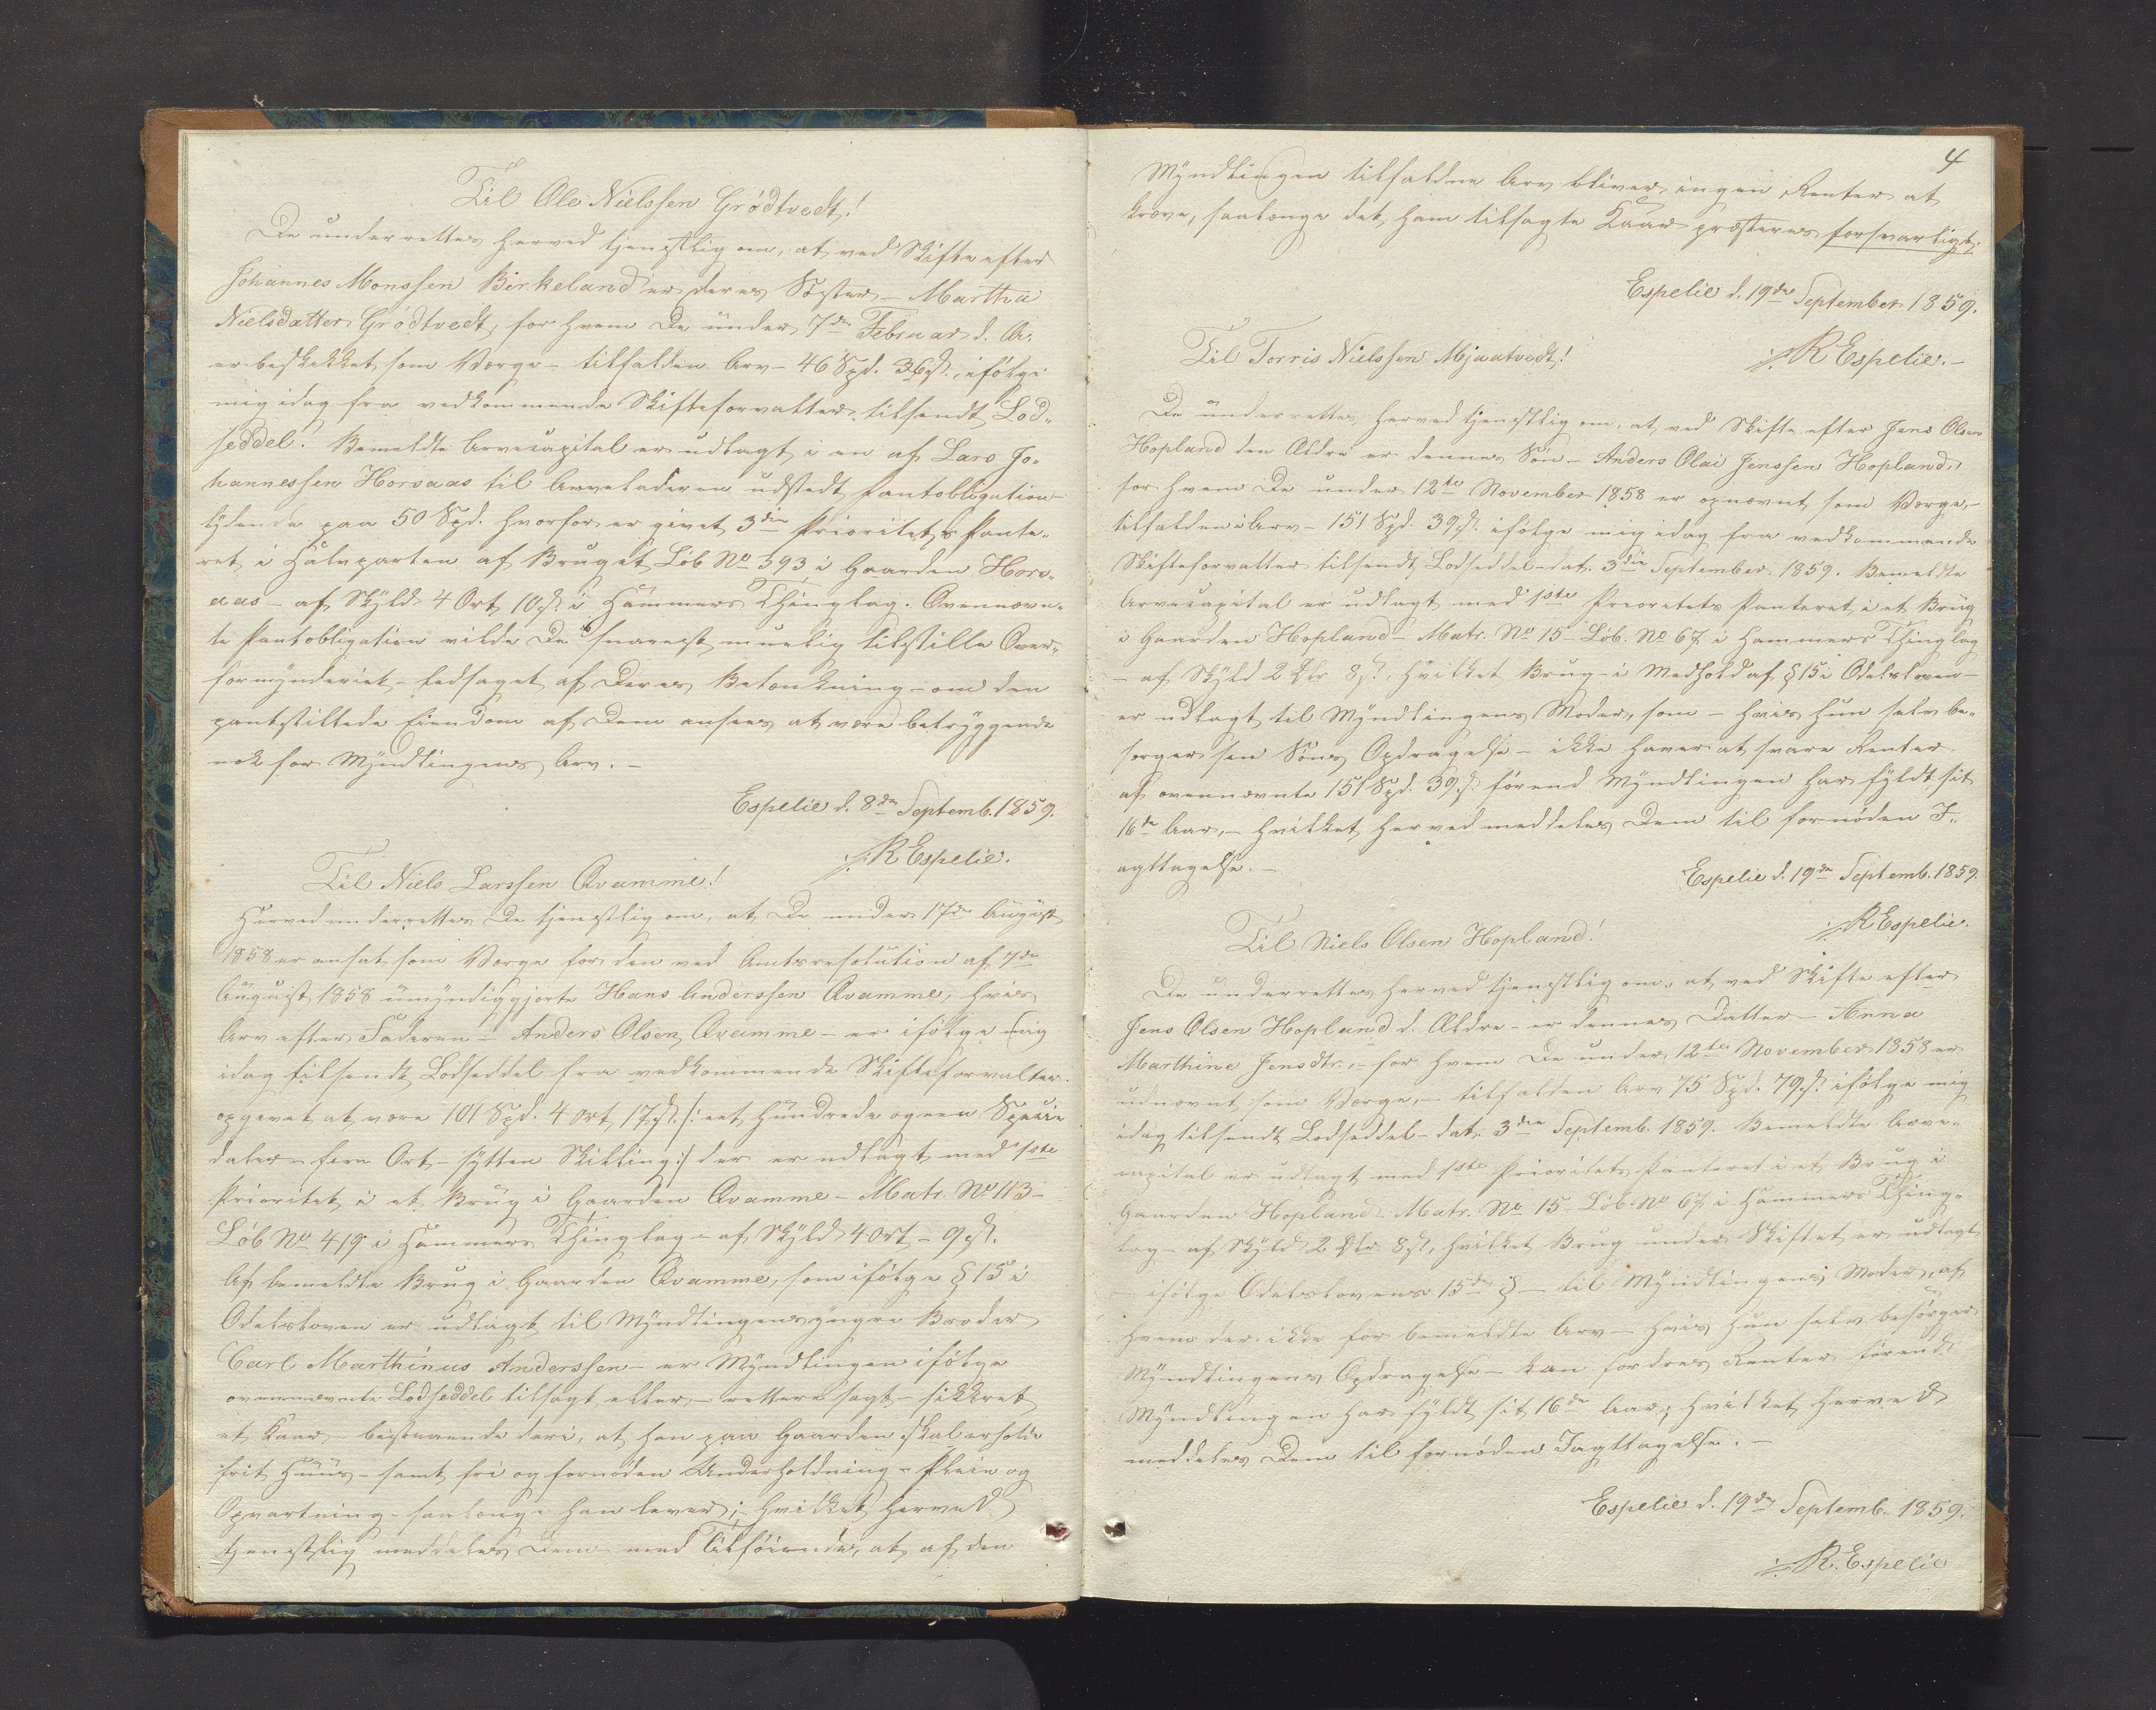 Til Ole Nielssen Grødtvedt!
De underrettes herved tjenstlig om, at ved Skifte efter
Johannes Monssen Birkeland er deres Søster – Martha
Nielsdatter Grødtvedt, for hvem De under 7de Februar d. A.
er beskikket som Værge – tilfalden Arv – 46 Spd. 36 s., ifølge
mig idag fra vedkommende Skifteforvalter tilsendt Lod-
seddel. Bemeldte Arvecapital er udlagt i en af Lars Jo-
hannessen Horsaas til Arveladeren udstedt Pantobligation –
lydende paa 50 Spd. hvorfor er givet 3die Prioritets Pante-
ret i Halvparten af Bruget Løb No 393 i Gaarden Hors-
aas – af Skyld 4 Ort 10 s. i Hammers Thinglag. Ovennævn-
te Pantobligation vilde De snarest muelig tilstille Over-
formynderiet – ledsaget af Deres Betænkning – om den
pantstillede Eiendom af Dem ansees at være betryggende
nok for Myndlingens Arv. –
Espelie d. 8de Septemb. 1859.
R Espelie.
Til Niels Larssen Qvamme!
Herved underrettes De tjenstlig om, at De under 17de August
1858 er ansat som Værge for den ved Amtsresolution af 7de
August 1858 umyndiggjorte Hans Anderssen Qvamme, hvis
Arv efter Faderen – Anders Olsen Qvamme – er ifølge mig
idag tilsendt Lodseddel fra vedkommende Skifteforvalter
opgivet at være 101 Spd. 4 Ort 17 s. /: eet Hundrede og een Specie
daler – fire Ort – sytten Skilling :/ der er udlagt med 1ste
Prioritet i et Brug i Gaarden Qvamme – Matr. No 113 –
Løb No 419 i Hammers Thinglag – af Skyld 4 Ort – 9 s.
Af bemeldte Brug i Gaarden Qvamme, som ifølge § 15 i
Odelsloven er udlagt til Myndlingens yngre Broder
Carl Marthinus Anderssen – er Myndlingen ifølge
ovennævnte Lodseddel tilsagt eller – rettere sagt – sikkret
et Kaar – bestaaende deri, at han paa Gaarden skal erholde
frit Huus – samt fri og fornøden Underholdning – Pleie og
Opvartning – saalænge han lever; – hvilket herved
tjenstlig meddeles Dem med Tilføiende, at af den
4
Myndlingen tilfaldne Arv bliver ingen Renter at
kræve, saalænge det ham tilsagte Kaar præsteres forsvarligt.
Espelie d. 19de September 1859.
R Espelie. –
Til Torris Nielssen Mjaatvedt!
De underrettes herved tjenstlig om, at ved Skifte efter Jens Olsen
Hopland den Ældre er dennes Søn – Anders Olai Jenssen Hopland,
for hvem De under 12te November 1858 er opnævnt som Værge, –
tilfalden i Arv – 151 Spd. 39 s. ifølge mig idag fra vedkommende
Skifteforvalter tilsendt Lodseddel – dat. 3die September 1859. Bemeldte
Arvecapital er udlagt med 1ste Prioritets Panteret i et Brug
i Gaarden Hopland – Matr. No 15 – Løb. No 67 i Hammers Thinglag
– af Skyld 2 Dlr 8 s., hvilket Brug – i Medhold af § 15 i Odelsloven –
er udlagt til Myndlingens Moder, som – hvis hun selv be-
sørger sin Søns Opdragelse – ikke haver at svare Renter
af ovennævnte 151 Spd. 39 s. førend Myndlingen har fyldt sit
16de Aar, – hvilket herved meddeles Dem til fornøden I-
agttagelse. –
Espelie d. 19de Septemb. 1859.
R Espelie.
Til Niels Olsen Hopland!
De underrettes herved tjenstlig om, at ved Skifte efter
Jens Olsen Hopland d. Ældre – er dennes Datter – Anna
Marthine Jensdtr. – for hvem De under 12te November 1858 er
udnævnt som Værge, – tilfalden Arv 75 Spd. 79 s. ifølge mig
idag tilsendt Lodseddel – dat. 3die Septemb. 1859. Bemeldte Arve-
capital er udlagt med 1ste Prioritets Panteret i et Brug i
Gaarden Hopland Matr. No 15 – Løb. No 67 i Hammers Thing-
lag – af Skyld 2 Dlr 8 s., hvilket Brug under Skiftet er udlagt
– ifølge Odelslovens 15de § – til Myndlingens Moder, af
hvem der ikke for bemeldte Arv – hvis hun selv besørger
Myndlingens Opdragelse – kan fordres Renter førend
Myndlingen har fyldt sit 16de Aar; hvilket herved
meddeles Dem til fornøden Iagttagelse. –
Espelie d. 19de Septemb. 1859.
R. Espelie